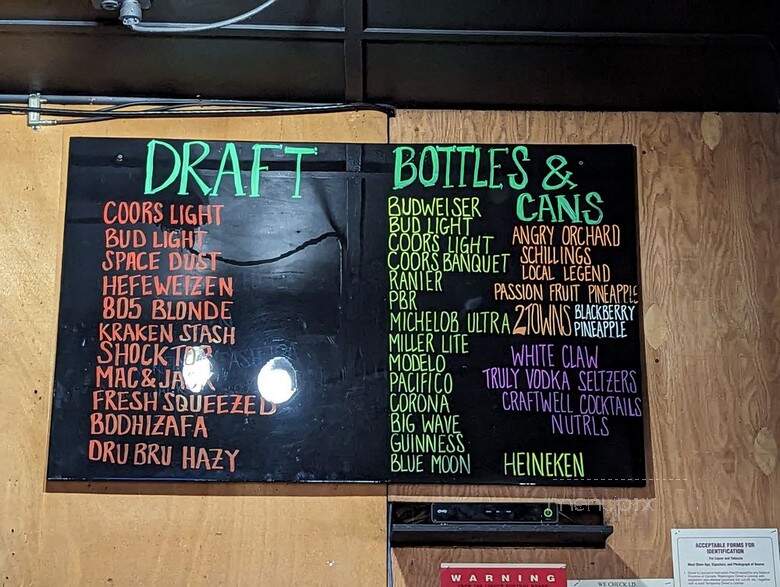 DRAFT
COORS LIGHT
BUD LIGHT
SPACE DUST
HEFEWEIZEN
805 BLONDE
KRAKEN STASH
SHOCKTOP
MAC & JACK
FRESH SQUEEZED
BODHIZAFA
DRU BRU HAZY
BOTTLES &
CANS
BUDWEISER
BUD LIGHT
COORS LIGHT
COORS BANQUET
RANIER
PBR
MICHELOB ULTRA
MILLER LITE
MODELO
PACIFICO
CORONA
BIG WAVE
GUINNESS
BLUE MOON
ANGRY ORCHARD
SCHILLINGS
LOCAL LEGEND
PASSION FRUIT PINEAPPLE
2TOWNS BLACKBERRY
PINEAPPLE
WHITE CLAW
TRULY VODKA SELTZERS
CRAFTWELL COCKTAILS
NUTRLS
HEINEKEN
menupix
WARNING
WE CHECK I.D.
ACCEPTABLE FORMS FOR
IDENTIFICATION